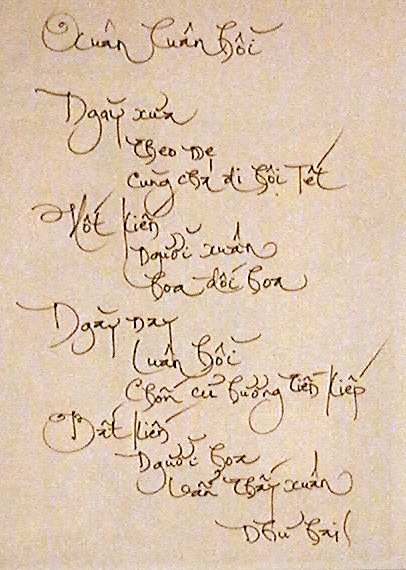 Xuân luân hồi
Ngày xưa
theo mẹ
cùng cha đi hội Tết
Một kiến
Người xuân
hoa đối hoa
Ngày nay
Luân hồi
Chốn cũ hương tiền kiếp
Bất kiến
Người hoa
vẫn thấy xuân
Như hai